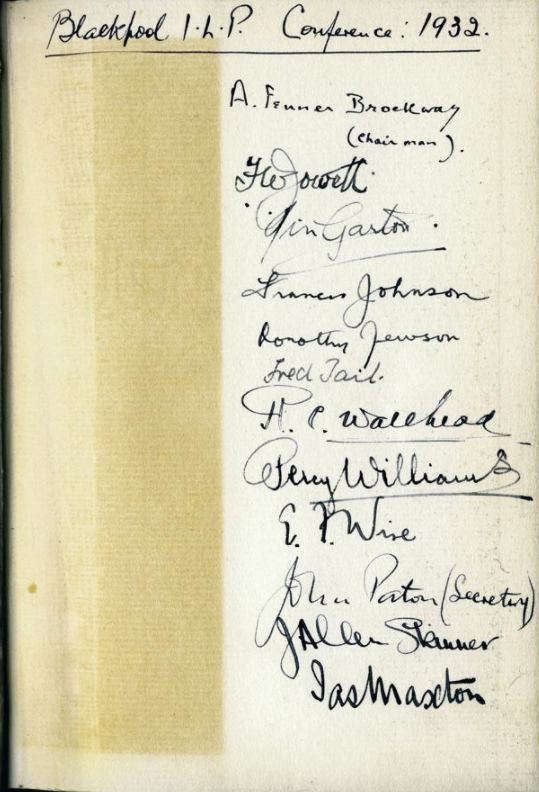 Blackpool I.L.P. Conference: 1932.
A. Fenner Brockway
(Chairman).
FW Jowett
Jim Garton.
Francis Johnson
Dorothy Jewson
Fred Tait.
R. C. Wallhead
Percy Williams
E. F. Wise
John Paton (Secretary)
J Allen Skinner
Jas Maxton